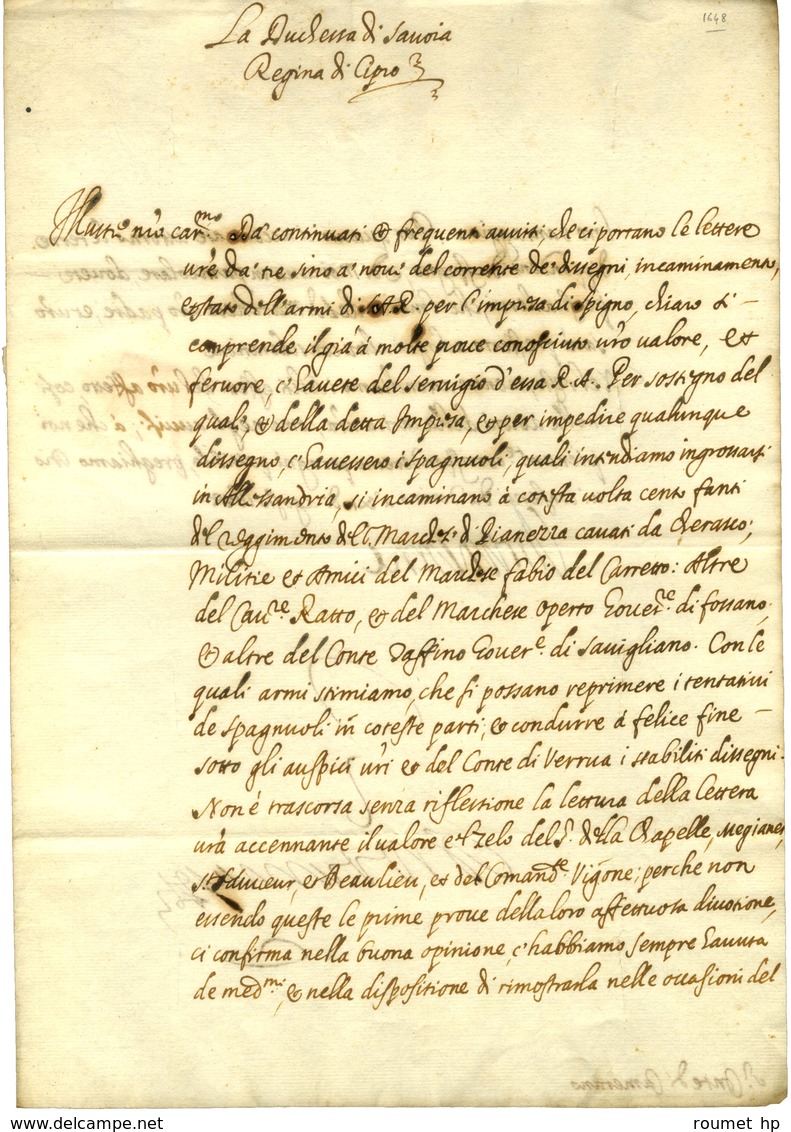 1648
La Duchessa di Savoia
Regina di Cipro
Illustre nr̃o car.mo Da' continuati & frequenti avvisi, che ci portano le lettere
vr̃e da' tre sino a' nove del corrente de' dissegni, incaminamento,
e stato dell'armi di S.A.R. per l'impresa di Spigno, chiaro si
comprende il già à molte prove conosciuto vr̃o valore, et
fervore, c'havete del servigio d'essa R.A. Per sostegno del
quale, & della detta Impresa, et per impedire qualunque
dissegno, c'havessero i spagnuoli, quali intendiamo ingrossarsi
in Allessandria, si incaminano à cotesta volta cento fanti
del reggimento del March.e di Pianezza cavati da Cherasco;
Militie et Amici del Marchese fabio del Carretto: Altre
del Cav.re Ratto, & del Marchese Operto Gover.re di fossano,
& altre del Conte Taffino Gover.e di Savigliano. Con le
quali armi stimiamo, che si possano reprimere i tentativi
de spagnuoli in coteste parti, & condurre à felice fine
sotto gli auspici vr̃i & del Conte di Verrua i stabiliti dissegni.
Non è trascorsa senza riflessione la lettura della lettera
vr̃a accennante il valore e 'l zelo del S.r della Chapelle, Megianes,
et Beaulieu, et del Comand.re Vigone; perche non
essendo queste le prime prove della loro affettuosa divotione,
ci conferma nella buona opinione, c'habbiamo sempre havuta
de med.mi, & nella dispositione di rimostrarla nelle occasioni del
roumet hp
www.delcampe.net